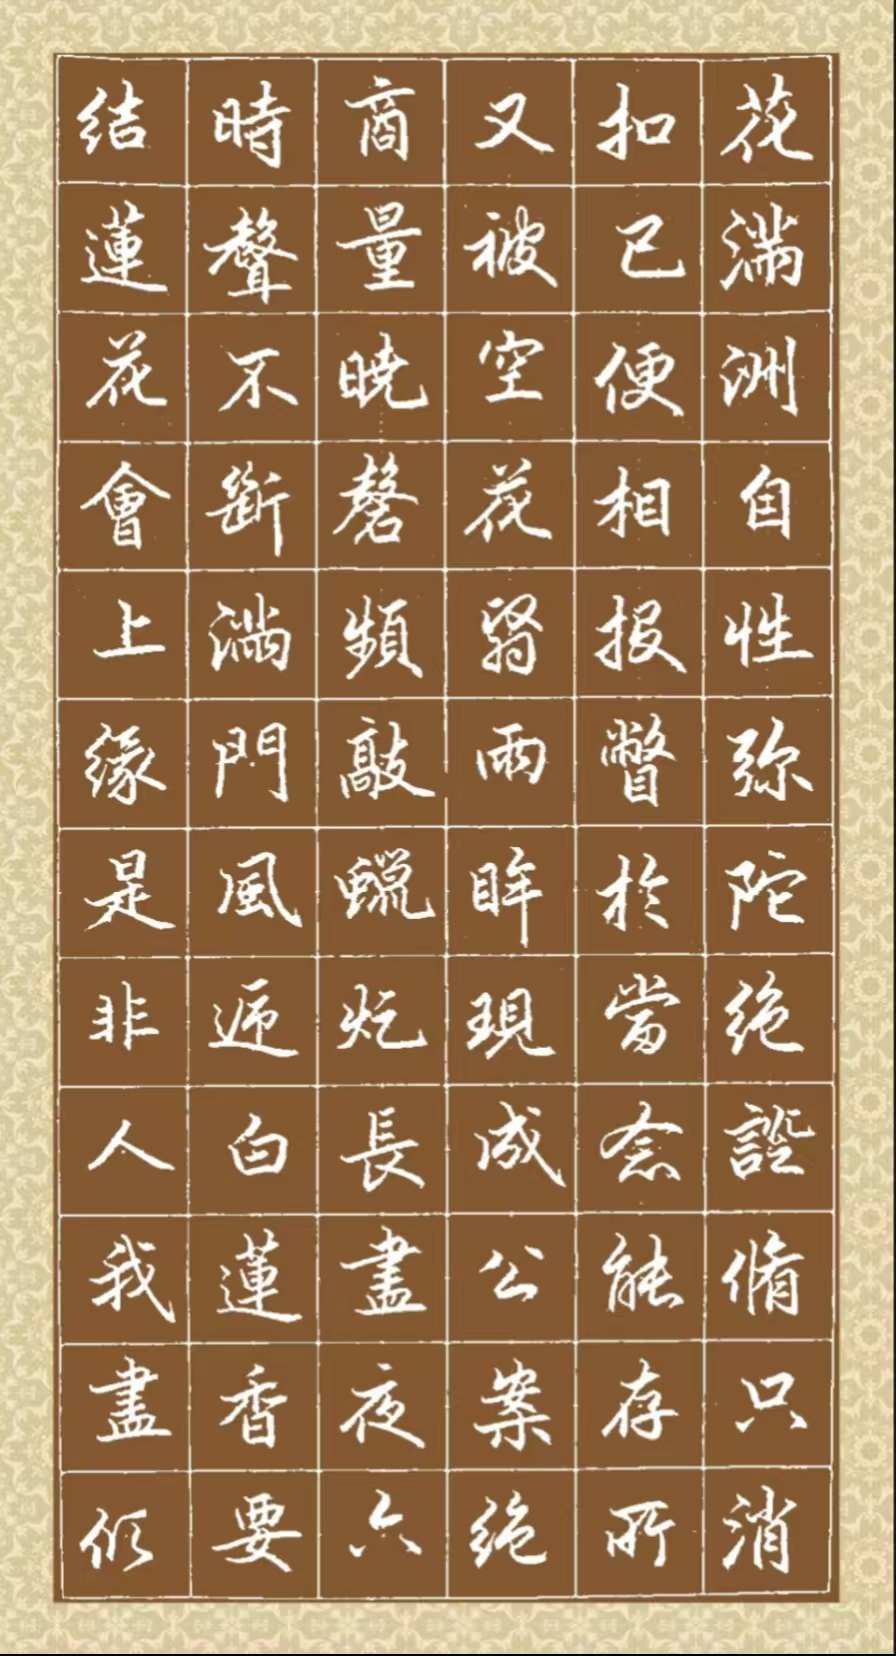 花滿洲自性弥陀絶證脩只消
扣已便相报瞥於當念能存所
又被空花翳兩眸現成公案絶
商量曉磬頻敲蠟炬長盡夜六
時聲不斷滿門風遞白蓮香要
結蓮花會上緣是非人我盡